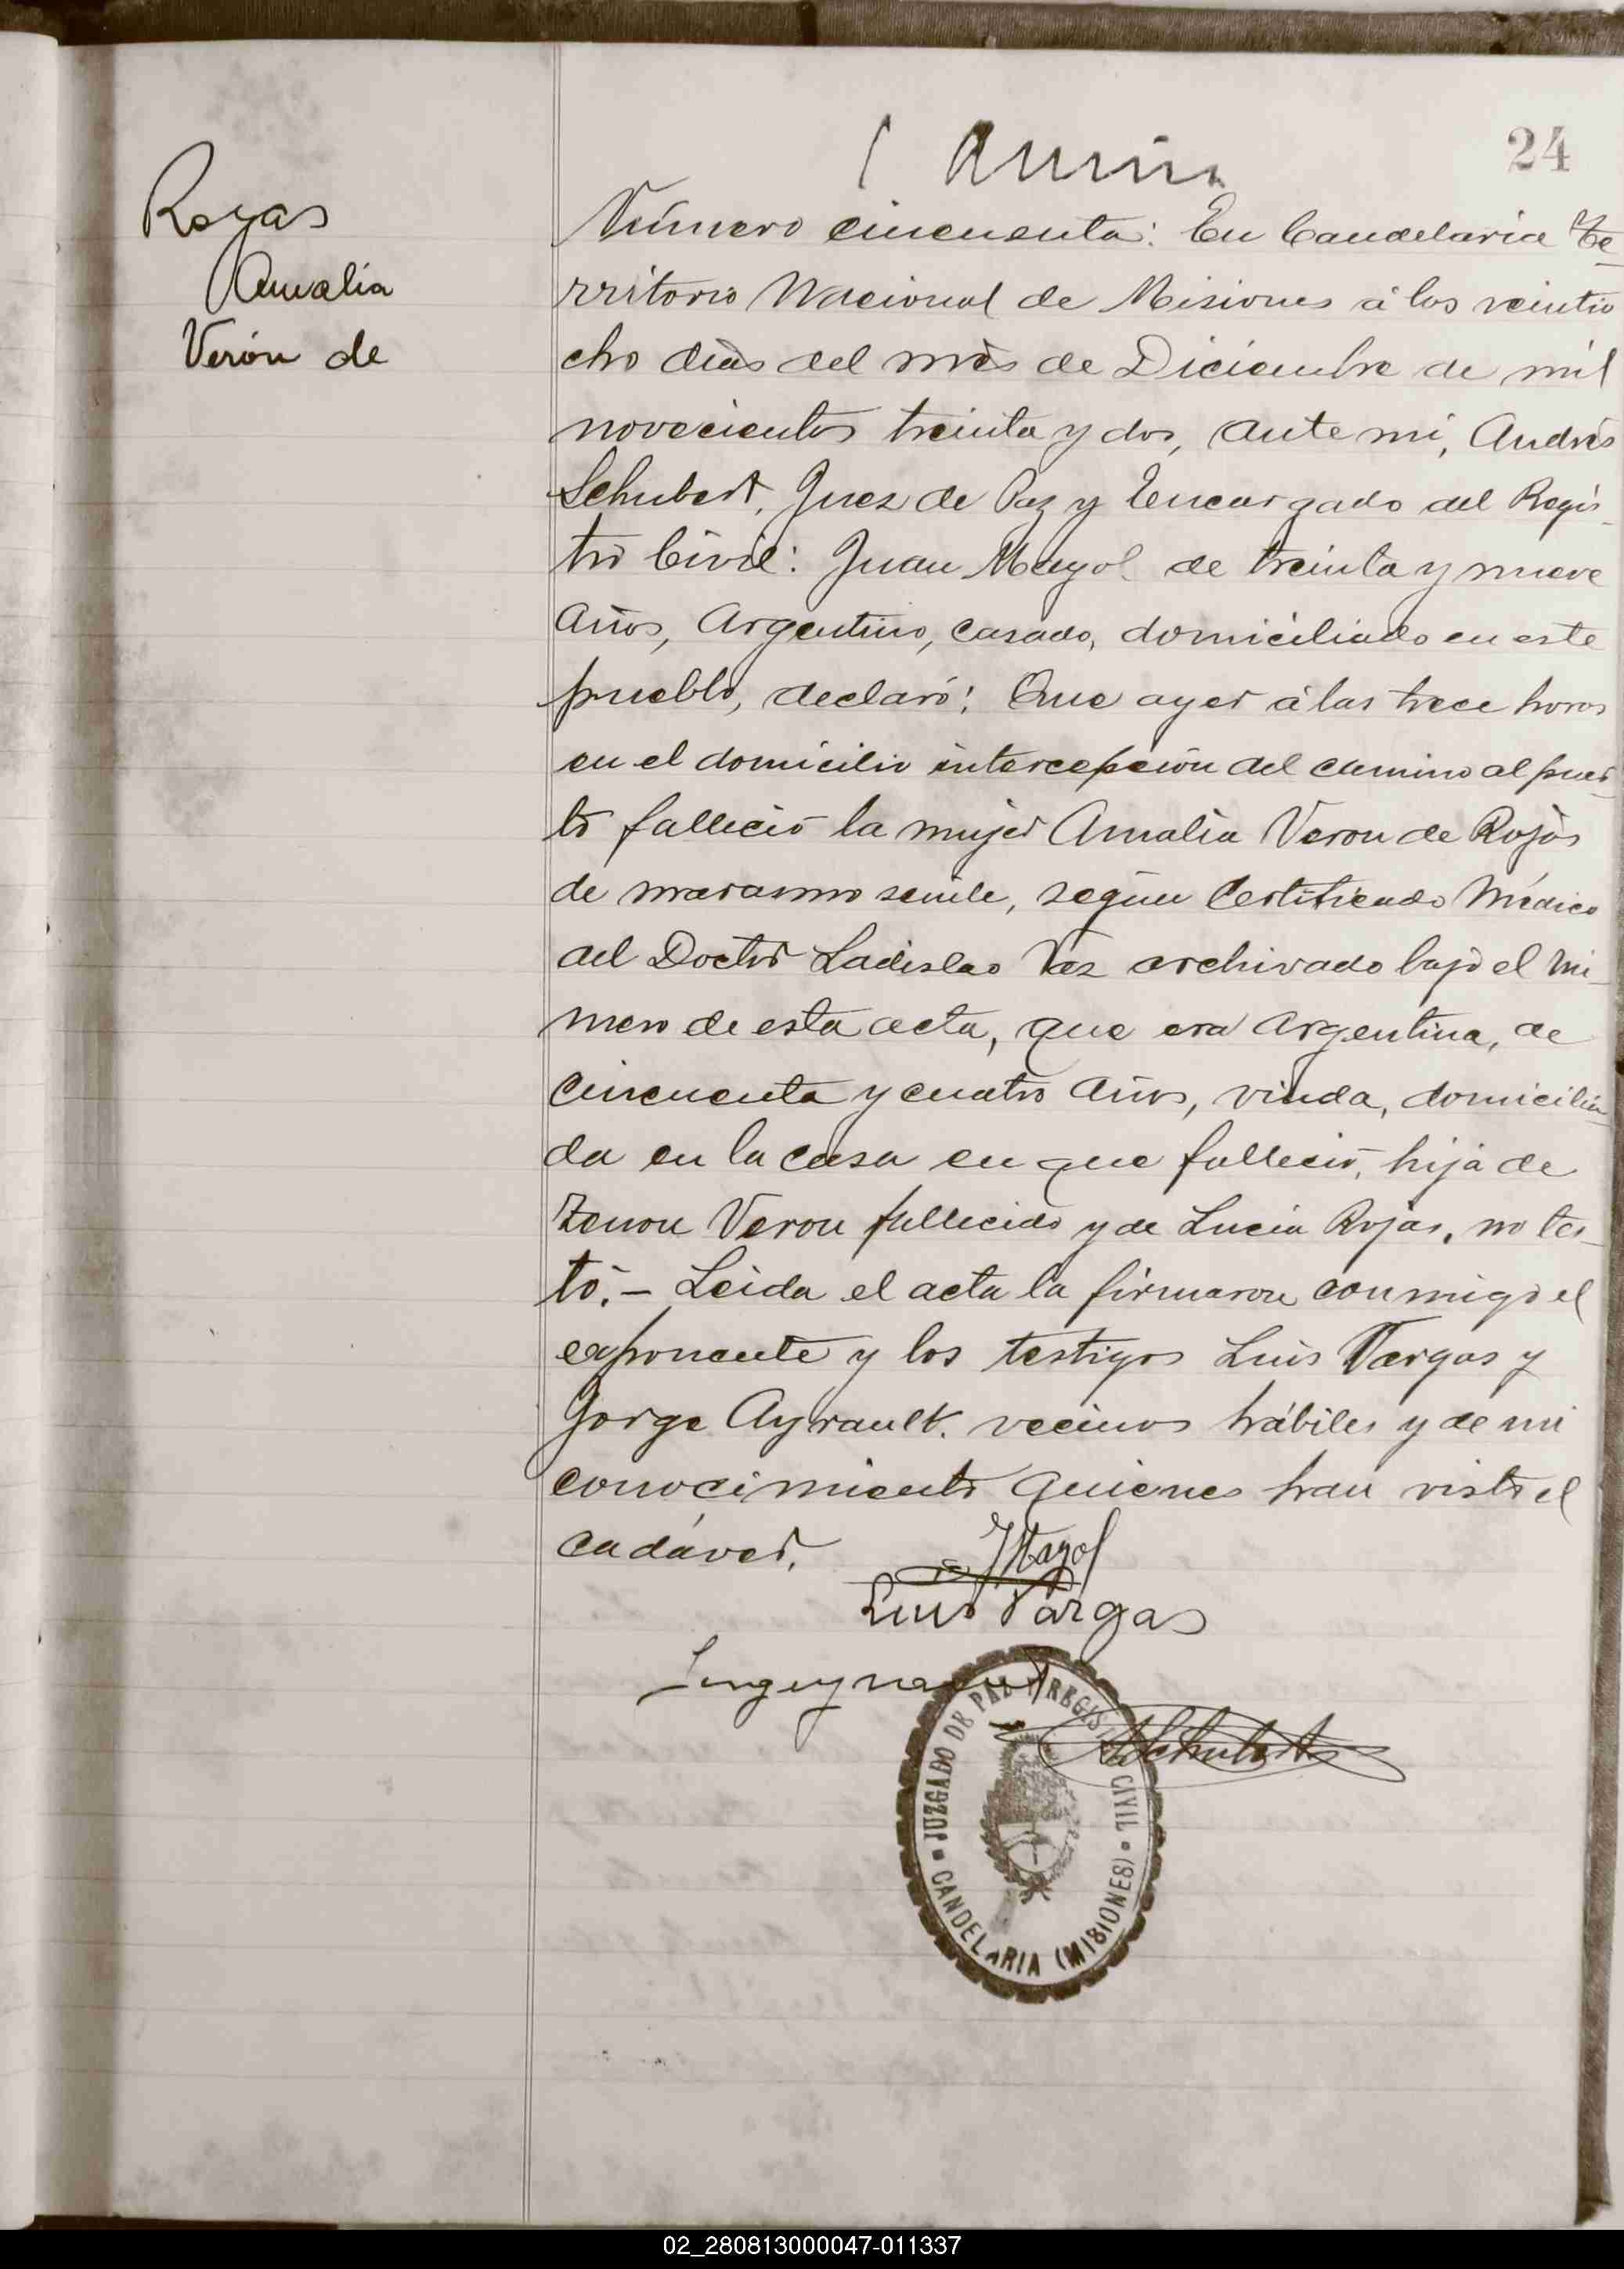 24
Rojas
Amalia
Verón de
Número cincuenta: En Candelaria Te-
rritorio Nacional de Misiones á los veintio
cho dias del mes de Diciembre de mil
novecientos treinta y dos, ante mi, Andrés
Schubert, Juez de Paz y Encargado del Regis-
tro Civil: Juan Mayol de treinta y nueve
años, Argentino, casado, domiciliado en este
pueblo, declaró: Que ayer á las trece horas
en el domicilio intercepción del camino al puer-
to falleció la mujer Amalia Veron de Rojas
de marasmo senile, según Certificado Médico
del Doctor Ladislao Vaz archivado bajo el nú-
mero de esta acta, que era Argentina, de
cincuenta y cuatro años, viuda, domicilia-
da en la casa en que falleció, hija de
Zenon Veron fallecido y de Lucia Rojas, no tes-
tó.- Leida el acta la firmaron conmigo el
exponente y los testigos Luis Vargas y
Jorge Ayrault. vecinos hábiles y de mi
conocimiento quienes han visto el
cadáver.
JMayol
Luis Vargas
ASchubert
JUZGADO DE PAZ Y REGISTRO CIVIL
CANDELARIA (MISIONES)
02_280813000047-011337